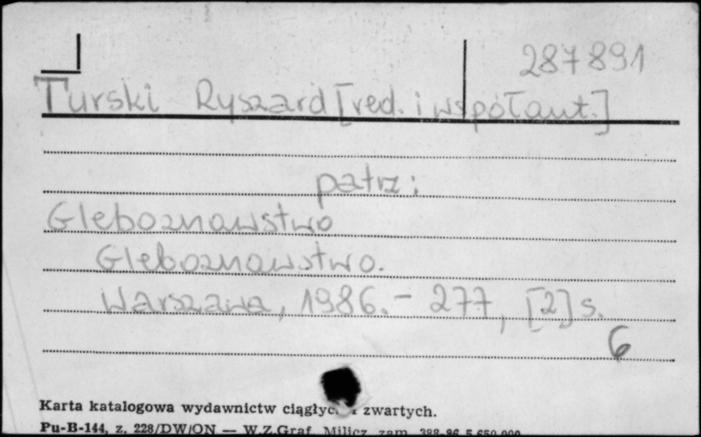 287891
Turski Ryszard [red. i współaut.]
patrz:
Gleboznawstwo
Gleboznawstwo.
Warszawa, 1986. - 277, [2] s.
6
Karta katalogowa wydawnictw ciągłych i zwartych.
Pu-B-144, z. 228/DW/ON — W.Z.Graf. Milicz zam. 388-86 5.650.000